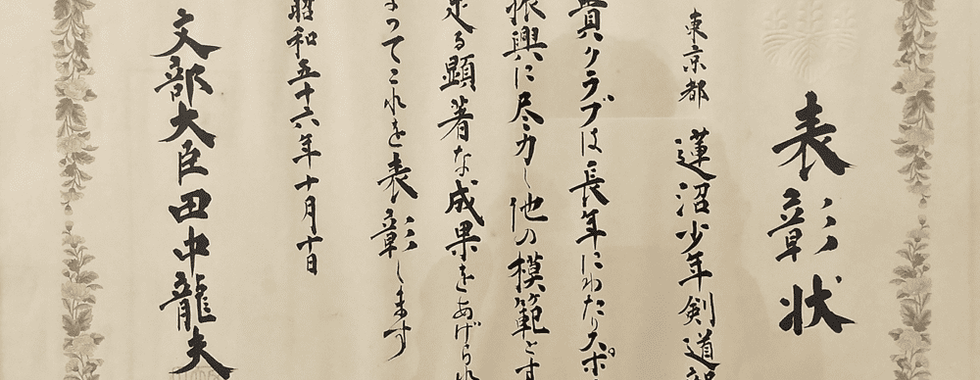 表彰状
東京都 蓮沼少年剣道
貴クラブは長年にわたりスポ
振興に尽力し他の模範とす
足る顕著な成果をあげられ
よってこれを表彰します
昭和五十六年十月十日
文部大臣田中龍夫